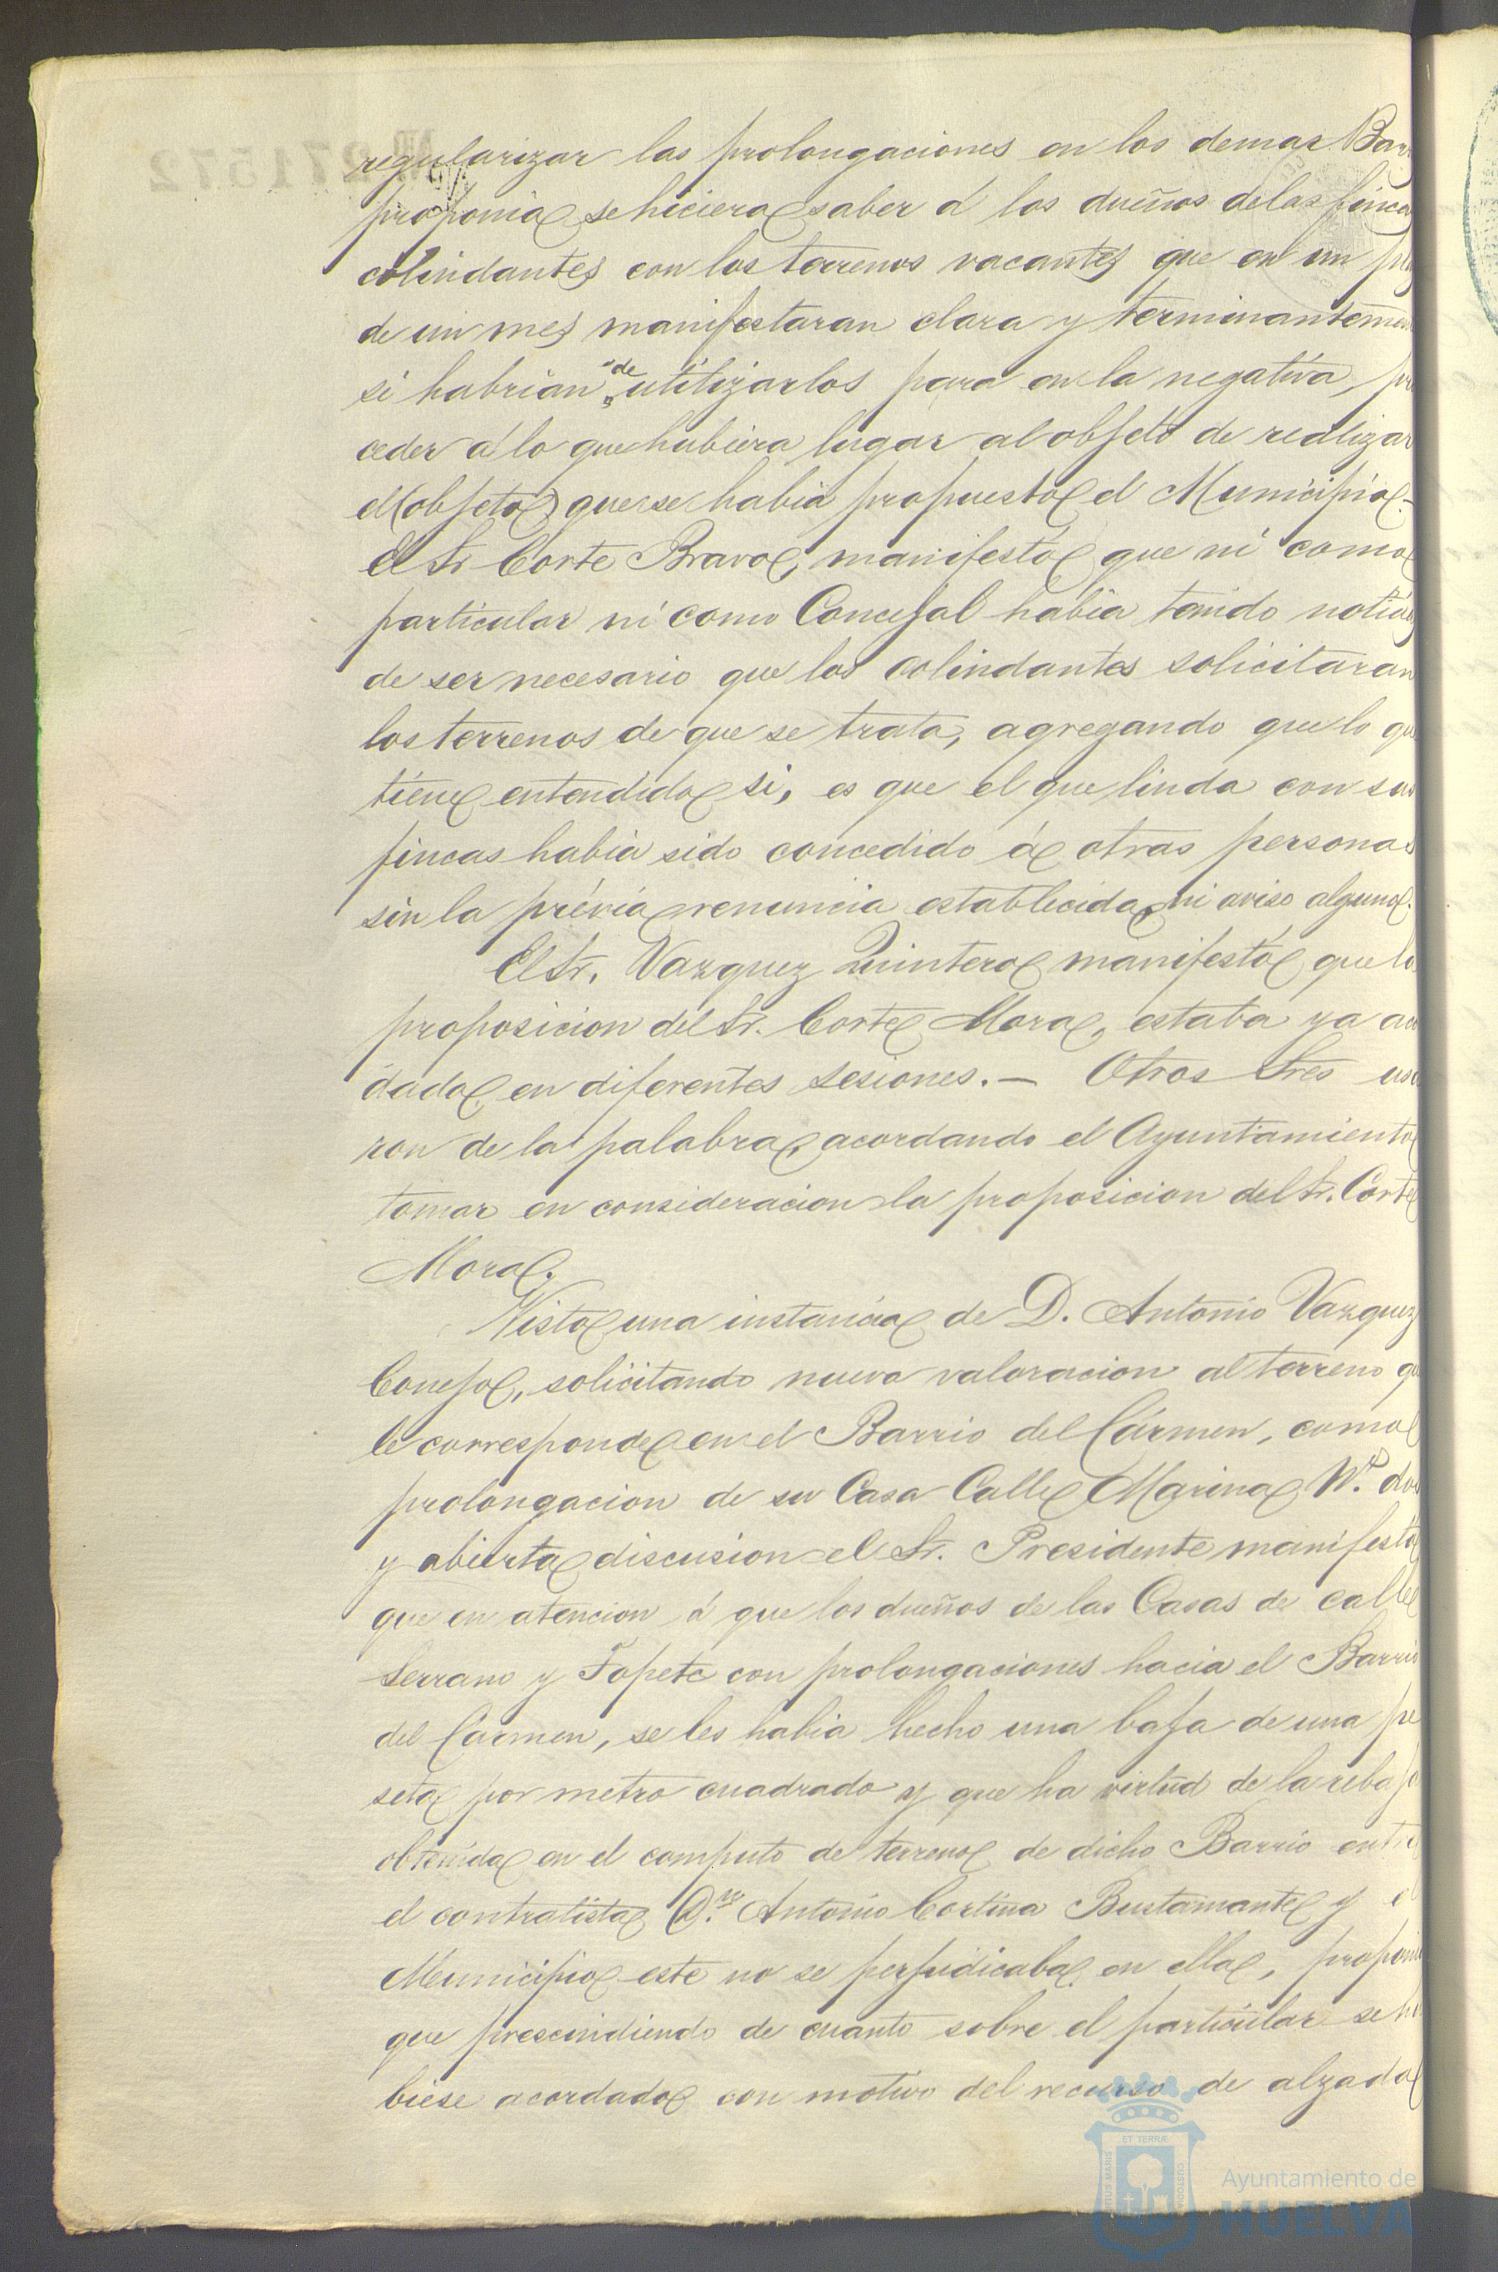 regularizar las prolongaciones en los demas Bar
proponia se hiciera saber á los dueños de las finca
colindantes con los terrenos vacantes que en un pla
de un mes manifestaran clara y terminantemen
si habrian de utilizarlos para en la negativa, pro
ceder á lo que hubiera lugar al objeto de realizar
el (objeto) que se habia propuesto el Municipio.-
El Sr Corte Bravo, manifestó que ni como
particular ni como Concejal habia tenido noticia
de ser necesario que los colindantes solicitaran
los terrenos de que se trata, agregando que lo que
tiene entendido si, es que el que linda con sus
fincas habia sido concedido á otras personas
sin la prévia renuncia establecida, ni aviso alguno.
El Sr. Vazquez Quintero manifestó que la
proposicion del Sr. Corte Mora, estaba ya acor
dado en diferentes sesiones. — Otros Sres usa
ron de la palabra, acordando el Ayuntamiento
tomar en consideracion la proposicion del Sr. Corte
Mora.
Visto una instancia de D. Antonio Vazquez
Conejo, solicitando nueva valoracion al terreno qu
le corresponde en el Barrio del Cármen, como
prolongacion de su Casa Calle Marina Nº. dos
y abierta discusion el Sr. Presidente manifestó
que en atencion á que los dueños de las Casas de calle
Serrano y Topete con prolongaciones hacia el Barrio
del Cármen, se les habia hecho una baja de una pe
seta por metro cuadrado y que ha virtud de la rebaja
obtenida en el computo de terreno de dicho Barrio entre
el contratista D.ⁿ Antonio Cortina Bustamante y el
Municipio este no se perjudicaba en ella, proponia
que prescindiendo de cuanto sobre el particular se hu
biese acordado con motivo del recurso de alzada
Nº 271572
ET TERRÆ
PORTUS MARIS
CUSTODIA
Ayuntamiento de
HUELVA